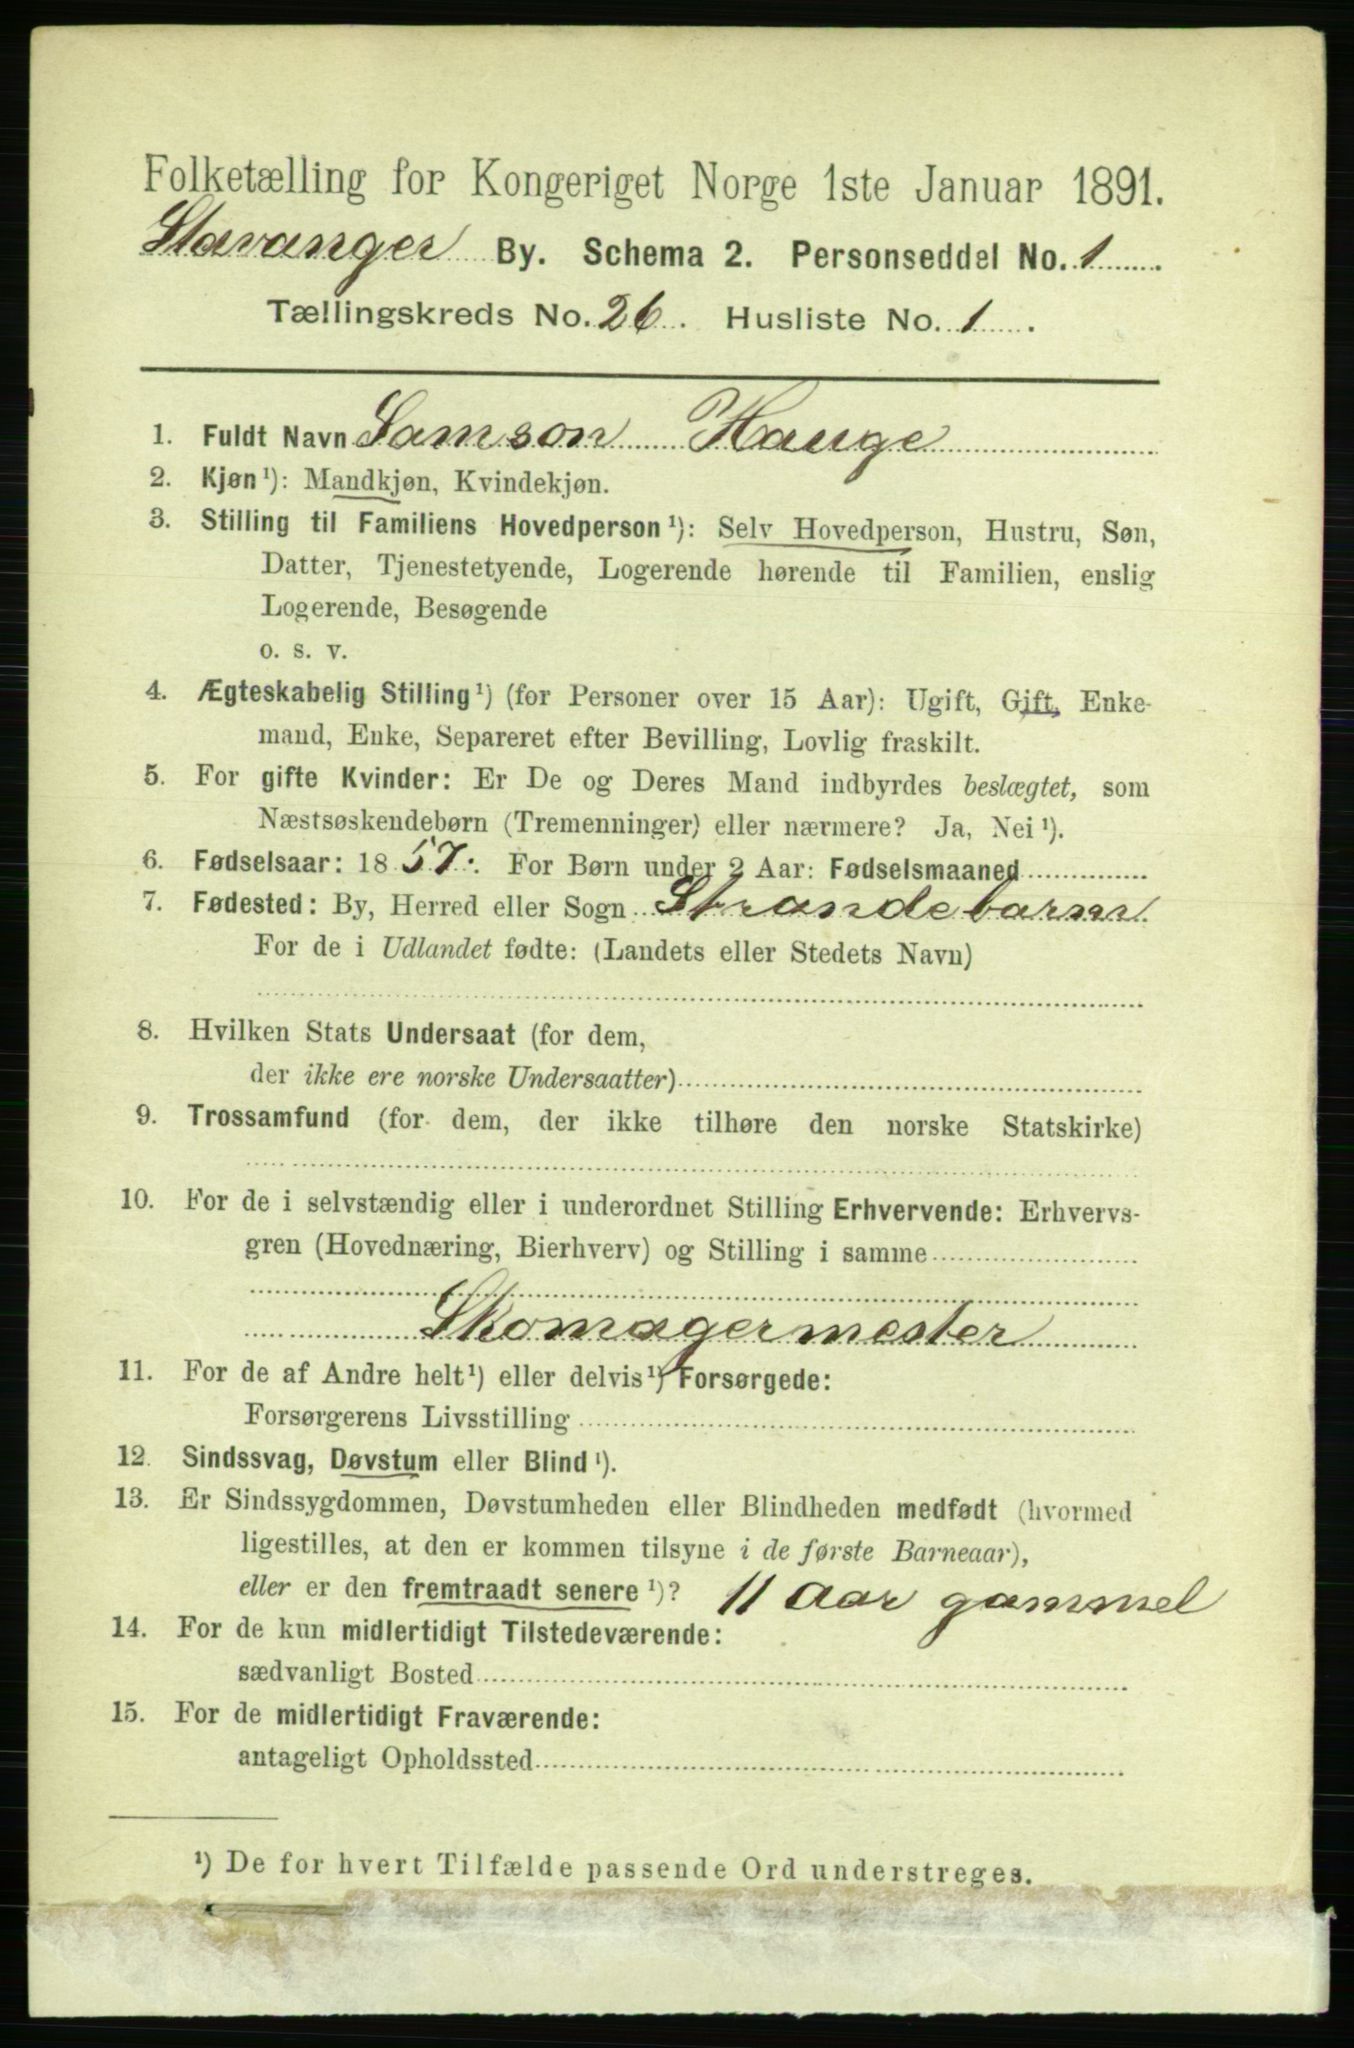 Folketælling for Kongeriget Norge 1ste Januar 1891.
Stavanger By. Schema 2. Personseddel No. 1
Tællingskreds No. 26. Husliste No. 1.
1. Fuldt Navn Samson Hauge
2. Kjøn¹): Mandkjøn, Kvindekjøn.
3. Stilling til Familiens Hovedperson¹): Selv Hovedperson, Hustru, Søn,
Datter, Tjenestetyende, Logerende hørende til Familien, enslig
Logerende, Besøgende
o. s. v.
4. Ægteskabelig Stilling¹) (for Personer over 15 Aar): Ugift, Gift, Enke-
mand, Enke, Separeret efter Bevilling, Lovlig fraskilt.
5. For gifte Kvinder: Er De og Deres Mand indbyrdes beslægtet, som
Næstsøskendebørn (Tremenninger) eller nærmere? Ja, Nei¹).
6. Fødselsaar: 1857. For Børn under 2 Aar: Fødselsmaaned
7. Fødested: By, Herred eller Sogn Strandebarm
For de i Udlandet fødte: (Landets eller Stedets Navn)
8. Hvilken Stats Undersaat (for dem,
der ikke ere norske Undersaatter)
9. Trossamfund (for dem, der ikke tilhøre den norske Statskirke)
10. For de i selvstændig eller i underordnet Stilling Erhvervende: Erhvervs-
gren (Hovednæring, Bierhverv) og Stilling i samme
Skomagermester
11. For de af Andre helt¹) eller delvis¹) Forsørgede:
Forsørgerens Livsstilling
12. Sindssvag, Døvstum eller Blind¹).
13. Er Sindssygdommen, Døvstumheden eller Blindheden medfødt (hvormed
ligestilles, at den er kommen tilsyne i de første Barneaar),
eller er den fremtraadt senere¹)? 11 Aar gammel
14. For de kun midlertidigt Tilstedeværende:
sædvanligt Bosted
15. For de midlertidigt Fraværende:
antageligt Opholdssted
¹) De for hvert Tilfælde passende Ord understreges.